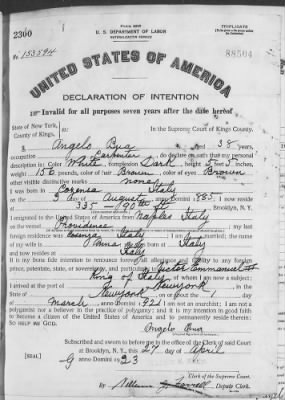 2300
Form 2202
TRIPLICATE
U. S. DEPARTMENT OF LABOR
NATURALIZATION SERVICE
No. 153594
88504
UNITED STATES OF AMERICA
DECLARATION OF INTENTION
Invalid for all purposes seven years after the date hereof
State of New York,
County of Kings,
ss:
In the Supreme Court of Kings County.
I, Angelo Bua, aged 38 years,
occupation Carpenter, do declare on oath that my personal
description is: Color White, complexion Dark, height 5 feet inches,
weight 156 pounds, color of hair Brown, color of eyes Brown
other visible distinctive marks none
I was born in Cozensa Italy
on the 5 day of August, anno Domini 1885; I now reside
at 335 Brooklyn, N. Y.
I emigrated to the United States of America from Naples Italy
on the vessel Providense; my last
foreign residence was Cosenza Italy; I am married; the name
of my wife is Anna; she was born at Italy
and now resides at Italy
It is my bona fide intention to renounce forever all allegiance and fidelity to any foreign
prince, potentate, state, or sovereignty, and particularly to Victor Emmanuel III
King of Italy, of whom I am now a subject;
I arrived at the port of New York, in the
State of New York, on or about the day
of March, anno Domini 1921; I am not an anarchist; I am not a
polygamist nor a believer in the practice of polygamy; and it is my intention in good faith
to become a citizen of the United States of America and to permanently reside therein:
SO HELP ME GOD.
Angelo Bua
Subscribed and sworn to before me in the office of the Clerk of said Court
at Brooklyn, N. Y., this 27 day of April
[SEAL]
anno Domini 1923
Clerk of the Supreme Court.
By William Deputy Clerk.